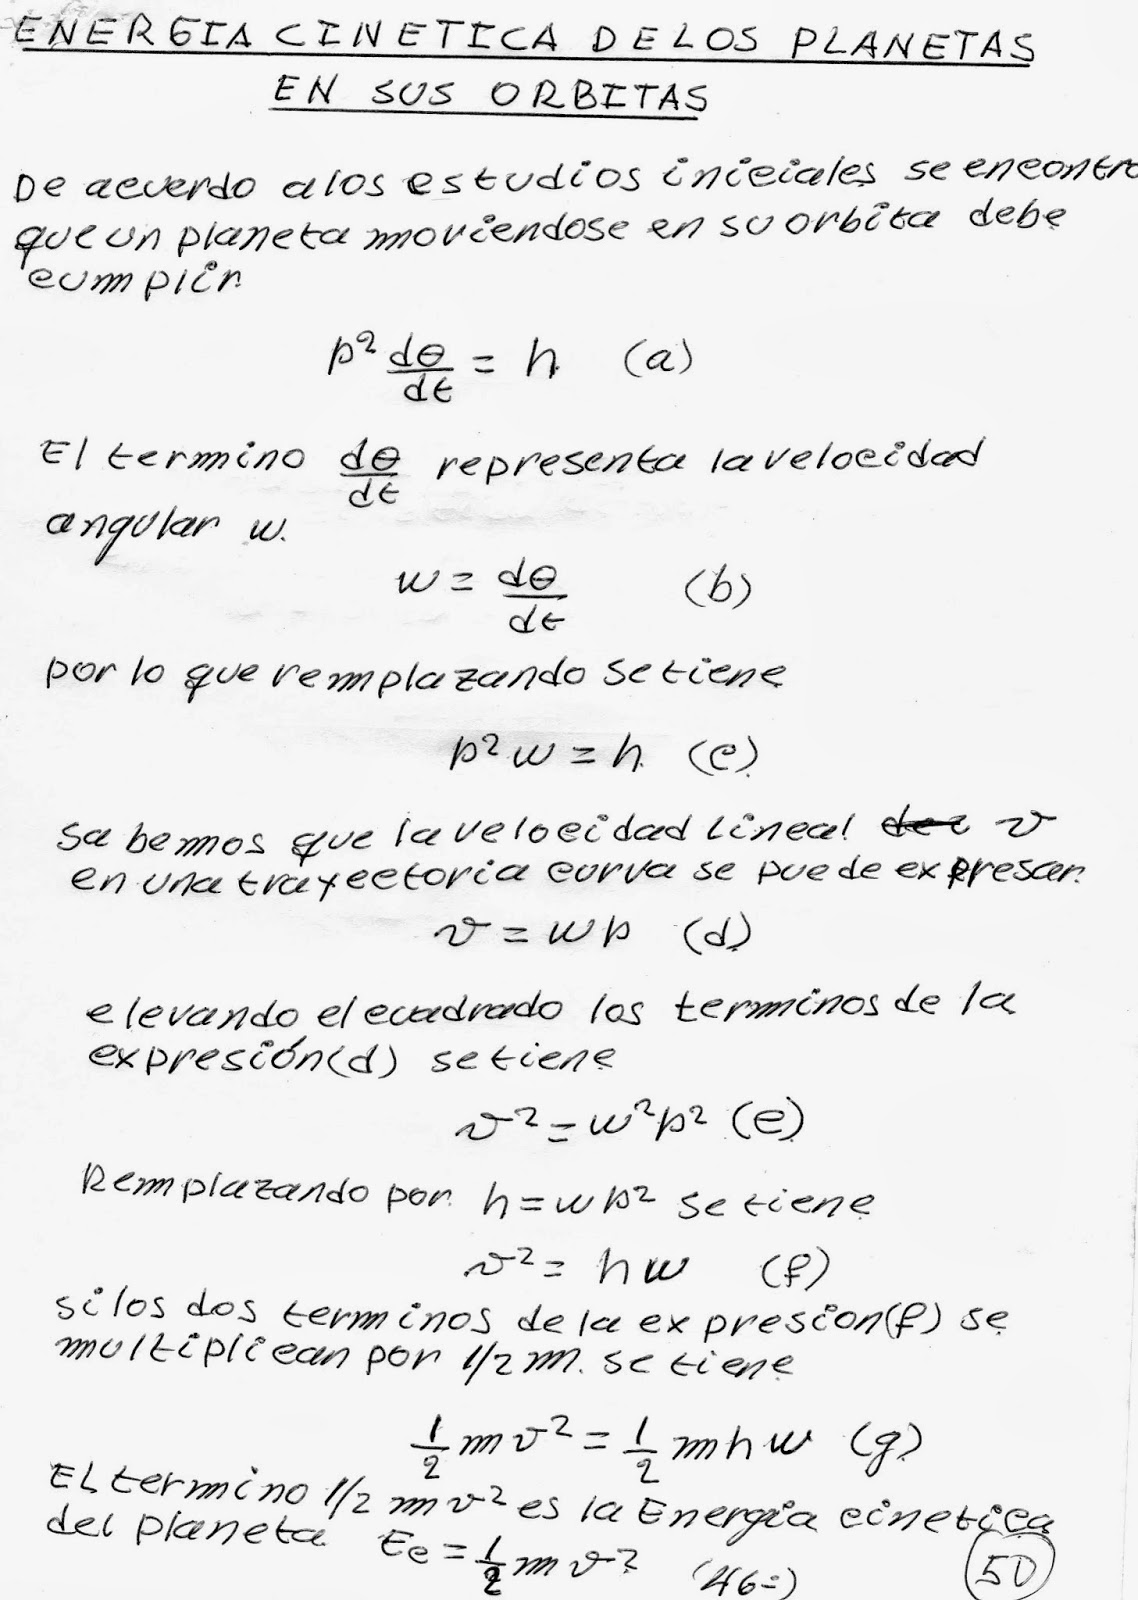 ENERGIA CINETICA DE LOS PLANETAS
EN SUS ORBITAS
De acuerdo a los estudios iniciales se encontro
que un planeta moviendose en su orbita debe
cumplir
p² dθ/dt = h (a)
El termino dθ/dt representa la velocidad
angular w.
w = dθ/dt (b)
por lo que remplazando se tiene
p² w = h (c)
Sabemos que la velocidad Lineal v
en una trayectoria curva se puede expresar.
v = wp (d)
elevando el cuadrado los terminos de la
expresión (d) se tiene
v² = w²p² (e)
Remplazando por h = wp² se tiene
v² = hw (f)
si los dos terminos de la expresion (f) se
multiplican por 1/2 m. se tiene
1/2 mv² = 1/2 mhw (g)
El termino 1/2 mv² es la Energia cinetica
del planeta. Ec = 1/2 mv² (46=)
50